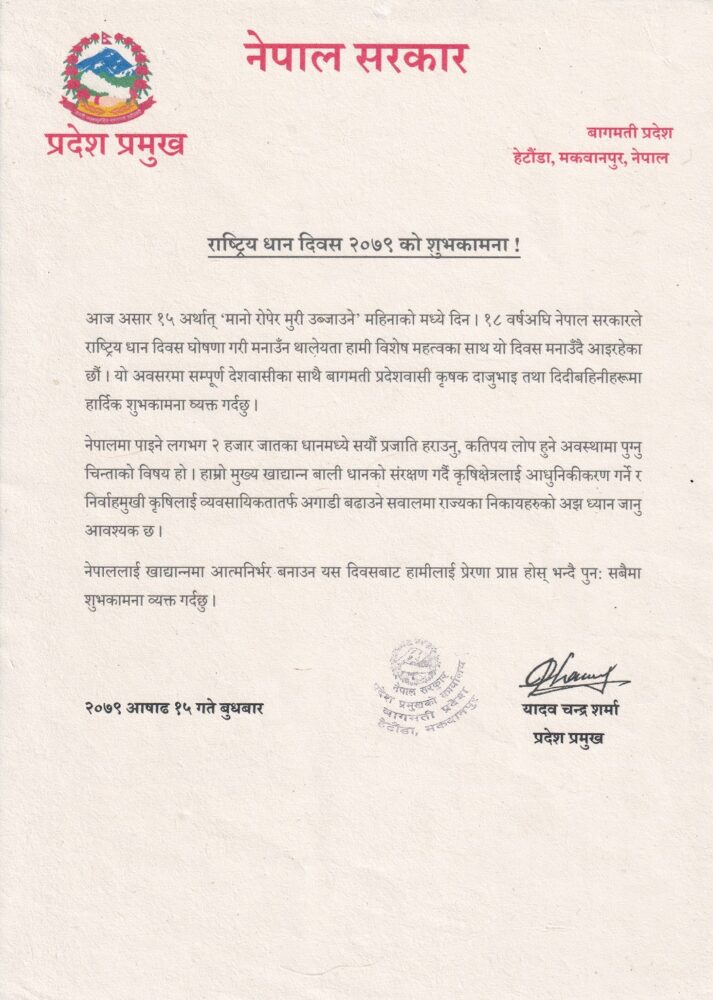 नेपाल सरकार
प्रदेश प्रमुख
बागमती प्रदेश
हेटौंडा, मकवानपुर, नेपाल
राष्ट्रिय धान दिवस २०७९ को शुभकामना !
आज असार १५ अर्थात् ‘मानो रोपेर मुरी उब्जाउने’ महिनाको मध्ये दिन । १८ वर्षअघि नेपाल सरकारले
राष्ट्रिय धान दिवस घोषणा गरी मनाउँन थालेयता हामी विशेष महत्वका साथ यो दिवस मनाउँदै आइरहेका
छौं । यो अवसरमा सम्पूर्ण देशवासीका साथै बागमती प्रदेशवासी कृषक दाजुभाइ तथा दिदीबहिनीहरूमा
हार्दिक शुभकामना व्यक्त गर्दछु ।
नेपालमा पाइने लगभग २ हजार जातका धानमध्ये सयौं प्रजाति हराउनु, कतिपय लोप हुने अवस्थामा पुग्नु
चिन्ताको विषय हो । हाम्रो मुख्य खाद्यान्न बाली धानको संरक्षण गर्दै कृषिक्षेत्रलाई आधुनिकीकरण गर्ने र
निर्वाहमुखी कृषिलाई व्यवसायिकतातर्फ अगाडी बढाउने सवालमा राज्यका निकायहरुको अझ ध्यान जानु
आवश्यक छ ।
नेपाललाई खाद्यान्नमा आत्मनिर्भर बनाउन यस दिवसबाट हामीलाई प्रेरणा प्राप्त होस् भन्दै पुन: सबैमा
शुभकामना व्यक्त गर्दछु ।
नेपाल सरकार
प्रदेश प्रमुखको कार्यालय
बागमती प्रदेश
हेटौंडा, मकवानपुर
२०७९ आषाढ १५ गते बुधबार
यादव चन्द्र शर्मा
प्रदेश प्रमुख